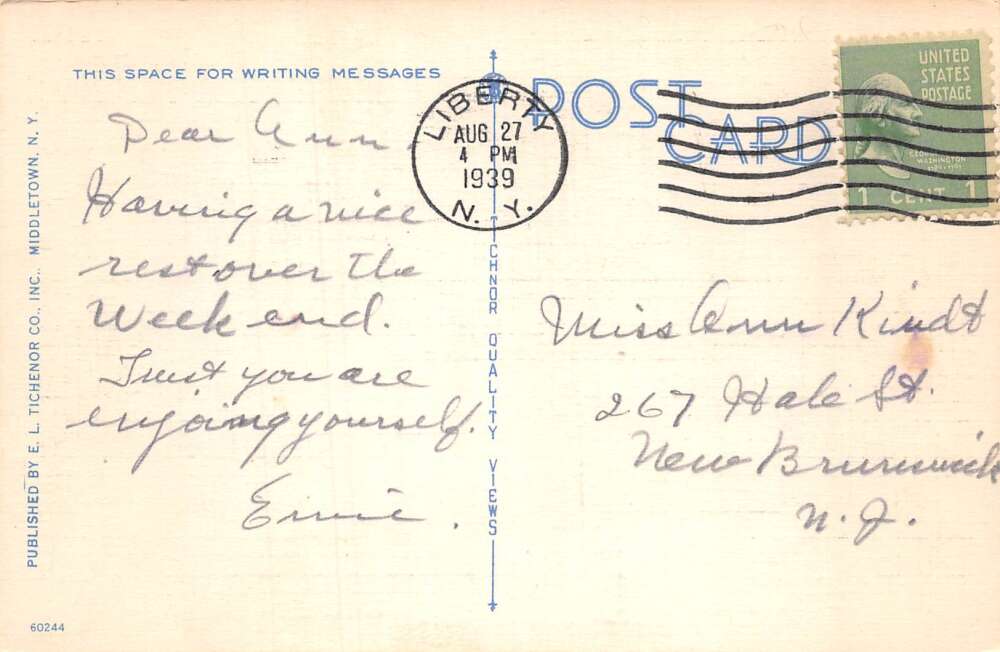 THIS SPACE FOR WRITING MESSAGES
POST
CARD
LIBERTY
AUG 27
4 PM
1939
N. Y.
UNITED
STATES
POSTAGE
GEORGE
WASHINGTON
1 CENT 1
Dear Ann
Having a nice
rest over the
Week end.
Trust you are
enjoing yourself.
Ernie.
Miss Ann Kindt
267 Hale St.
New Brunswick
N. J.
PUBLISHED BY E. L. TICHENOR CO., INC., MIDDLETOWN, N. Y.
TICHNOR QUALITY VIEWS
60244